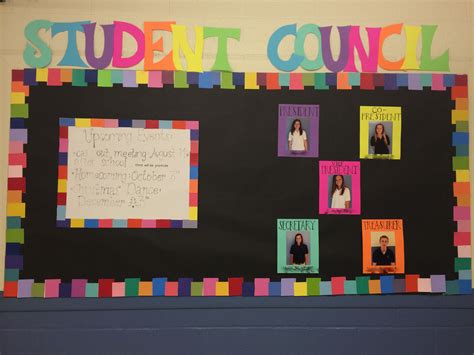 STUDENT COUNCIL
Upcoming Events
call out meeting August
after school
Homecoming - October
Christmas Dance -
December
PRESIDENT
CO-
PRESIDENT
VICE
PRESIDENT
SECRETARY
TREASURER